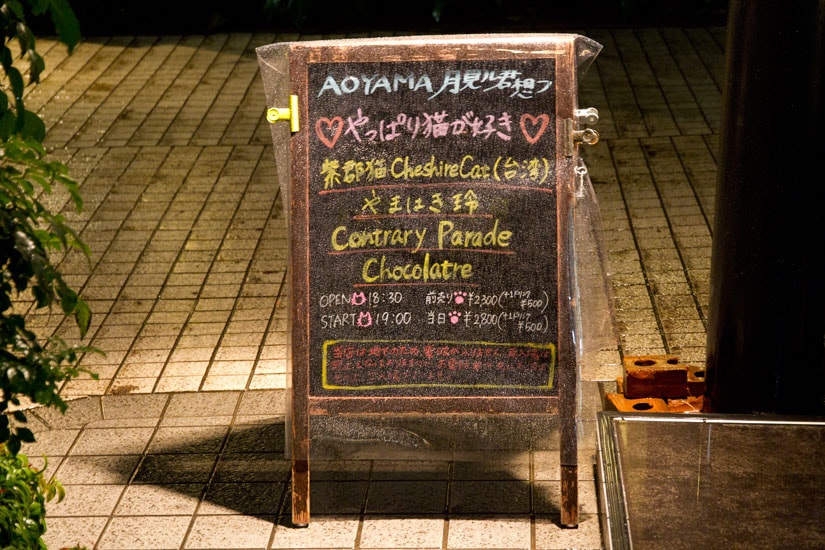 AOYAMA 月見ル君想フ
やっぱり猫が好き
柴郡猫 CheshireCat (台湾)
やまはき玲
Contrary Parade
Chocolatre
OPEN 18:30 前売り ¥2300 (+1ドリンク ¥500)
START 19:00 当日 ¥2800 (+1ドリンク ¥500)